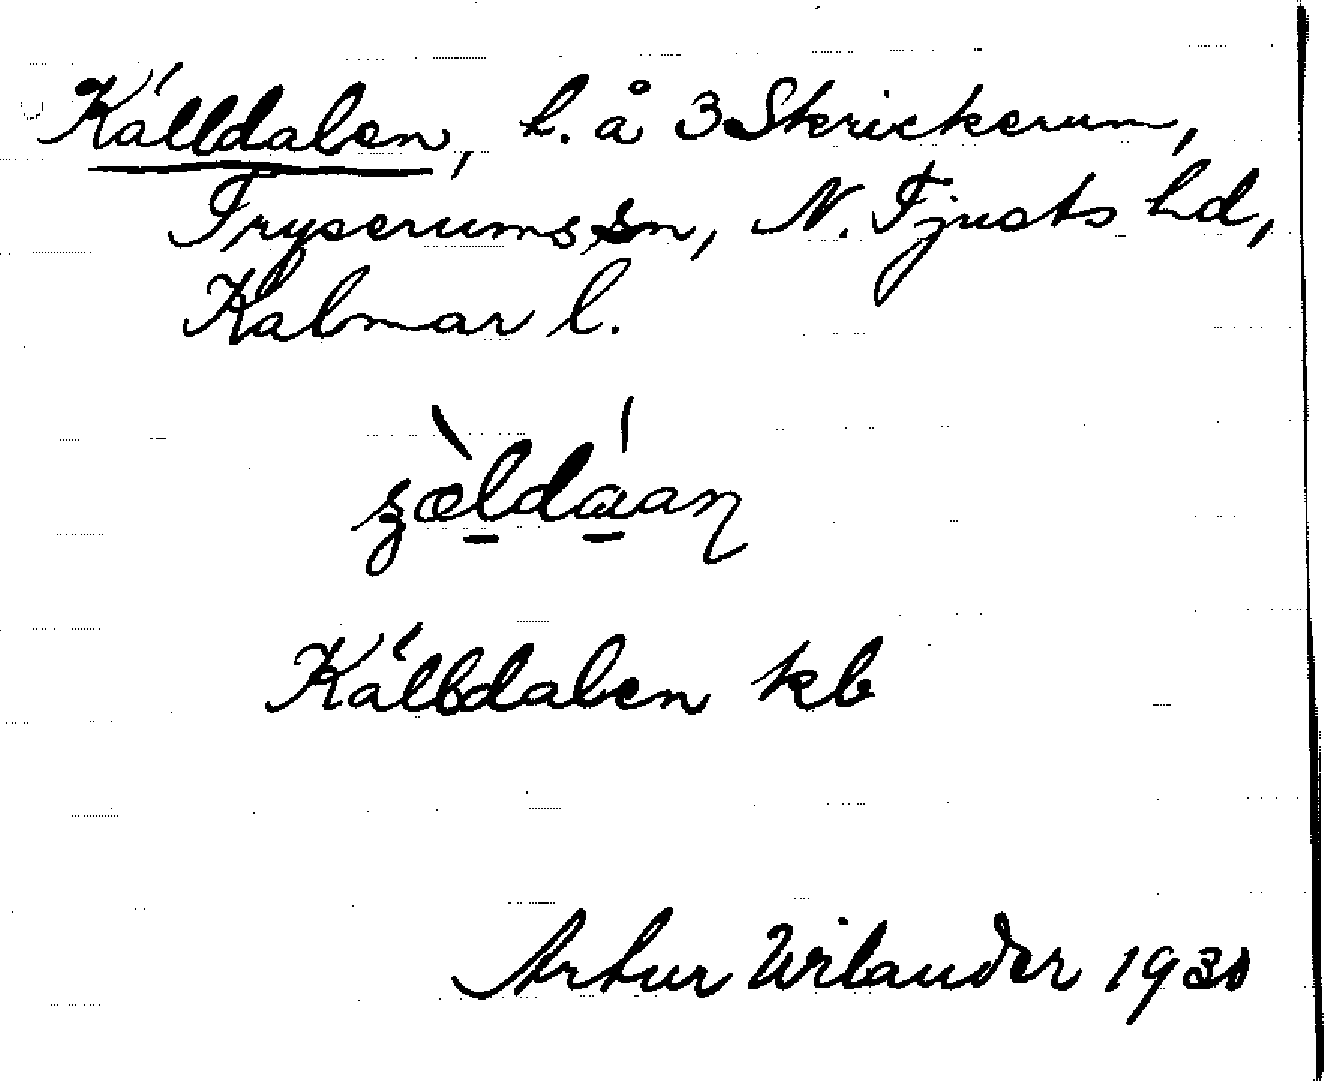 Källdalen, l. å 3 Skrickerum,
Tryserums sn, N. Tjusts hd,
Kalmar l.
Källdalen kb
Artur Wilander 1930